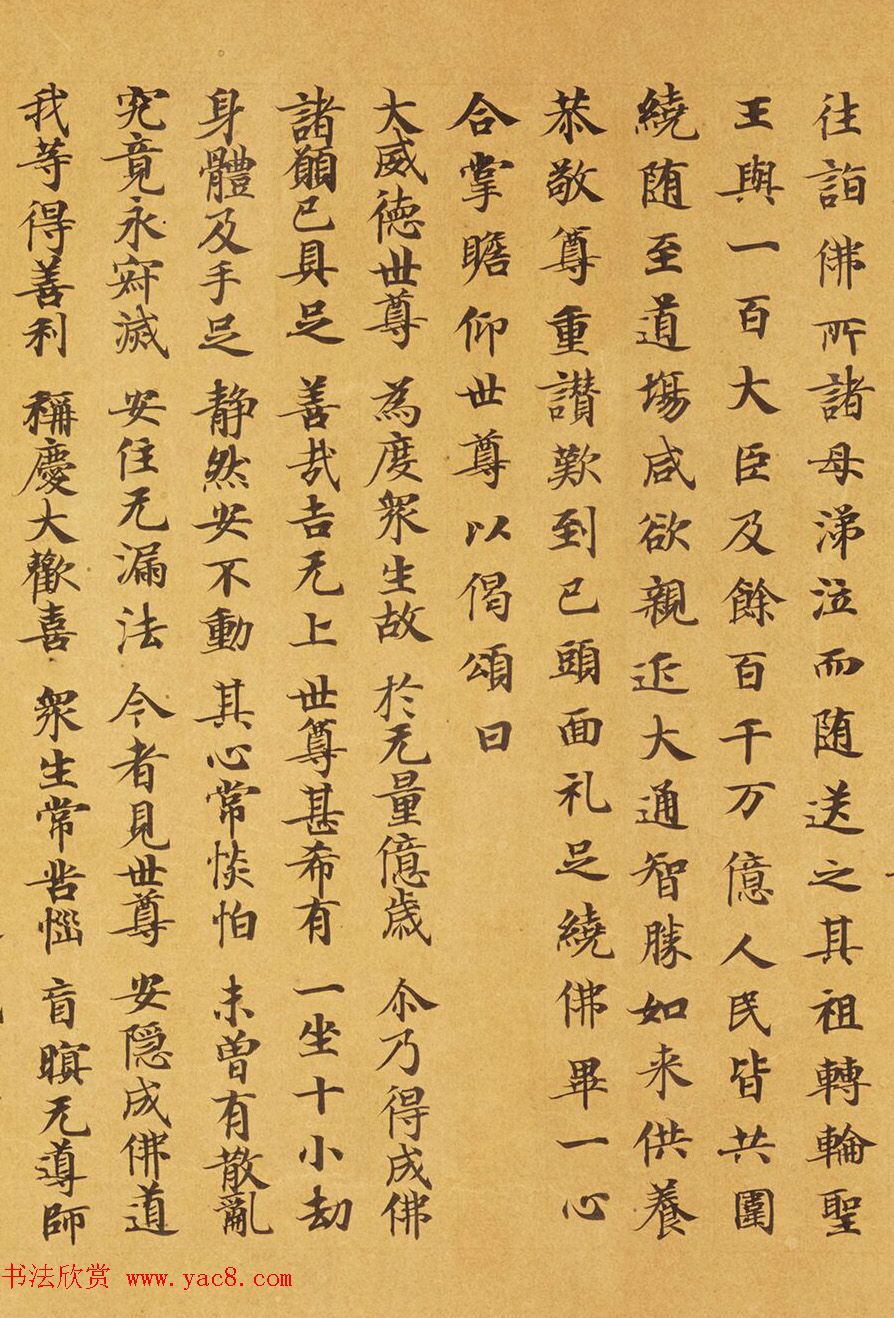 往詣佛所諸母涕泣而随送之其祖轉輪聖
王與一百大臣及餘百千万億人民皆共圍
繞随至道場咸欲親近大通智勝如来供養
恭敬尊重讃歎到已頭面礼足繞佛畢一心
合掌瞻仰世尊以偈頌曰
大威德世尊 為度衆生故 於无量億歲 尒乃得成佛
諸願已具足 善哉吉无上 世尊甚希有 一坐十小劫
身體及手足 静然安不動 其心常惔怕 未曾有散亂
究竟永寂滅 安住无漏法 今者見世尊 安隠成佛道
我等得善利 稱慶大歡喜 衆生常苦惱 盲瞑无導師
书法欣赏 www.yac8.com